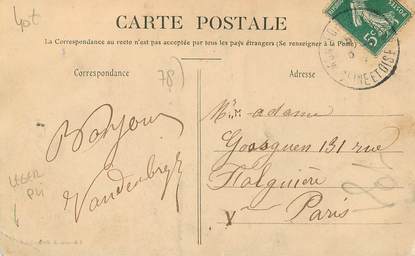 4pt
CARTE POSTALE
La Correspondance au recto n'est pas acceptée par tous les pays étrangers (Se renseigner à la Poste)
Correspondance
78)
Adresse
5c
SEINE ET OISE
Bonjour
Vandenbrogh
Madame
Goosquen 131 rue
Falguière
Paris
LEGER
PLI